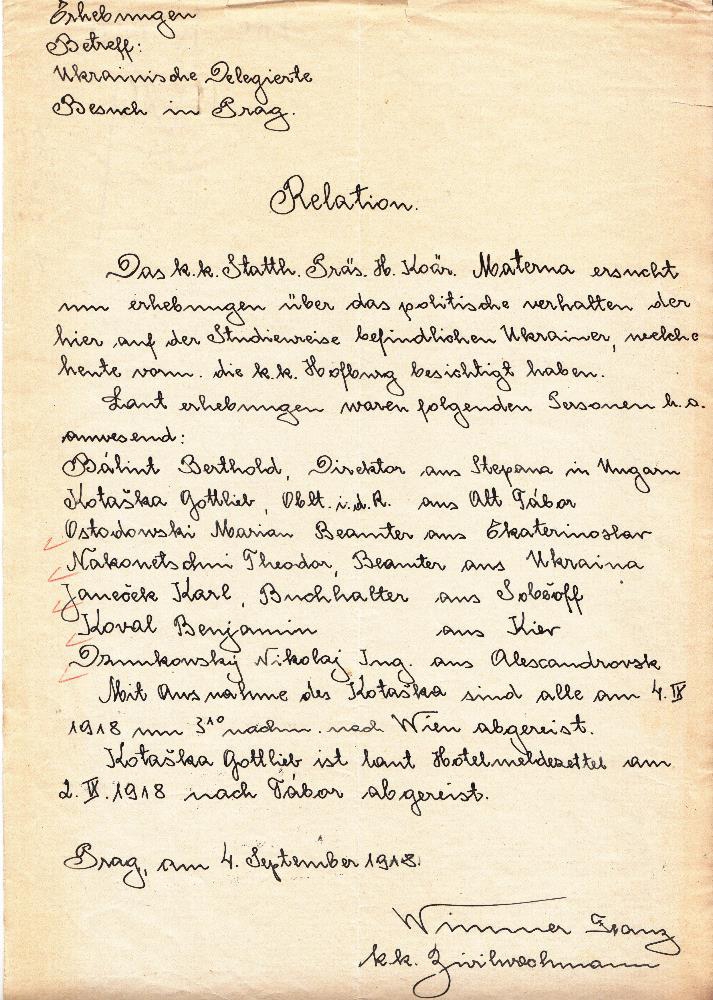 Erhebungen
Betreff:
Ukrainische Delegierte
Besuch in Prag.
Relation.
Das k.k. Statth. Präs. H. Koär. Materna ersucht
um erhebungen über das politische verhalten der
hier auf der Studienreise befindlichen Ukrainer, welche
heute vorm. die k.k. Hofburg besichtigt haben.
Laut erhebungen waren folgenden Personen h.o.
anwesend:
Bálint Berthold, Direktor aus Stepana in Ungarn
Kotaška Gottlieb, Oblt. i.d.R. aus Alt Tábor
Ostodowski Marian Beamter aus Ekaterinoslav
Nakonetschni Theodor, Beamter aus Ukraina
Janeček Karl, Buchhalter aus
Koval Benjamin aus Kiev
Nikolaj Ing. aus Alescandrovsk
Mit Ausnahme des Kotaška sind alle am 4. IX
1918 um 3¹⁰ nachm. nach Wien abgereist.
Kotaška Gottlieb ist laut Hotelmeldezettel am
2. IX. 1918 nach Tábor abgereist.
Prag, am 4. September 1918.
Wimmer Franz
k.k. Zivilwachmann